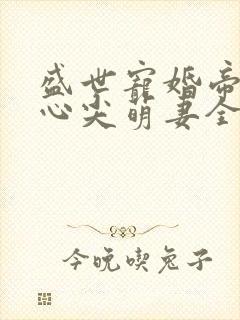 盛世寵婚帝
心尖萌妻全
今晚喫兔子